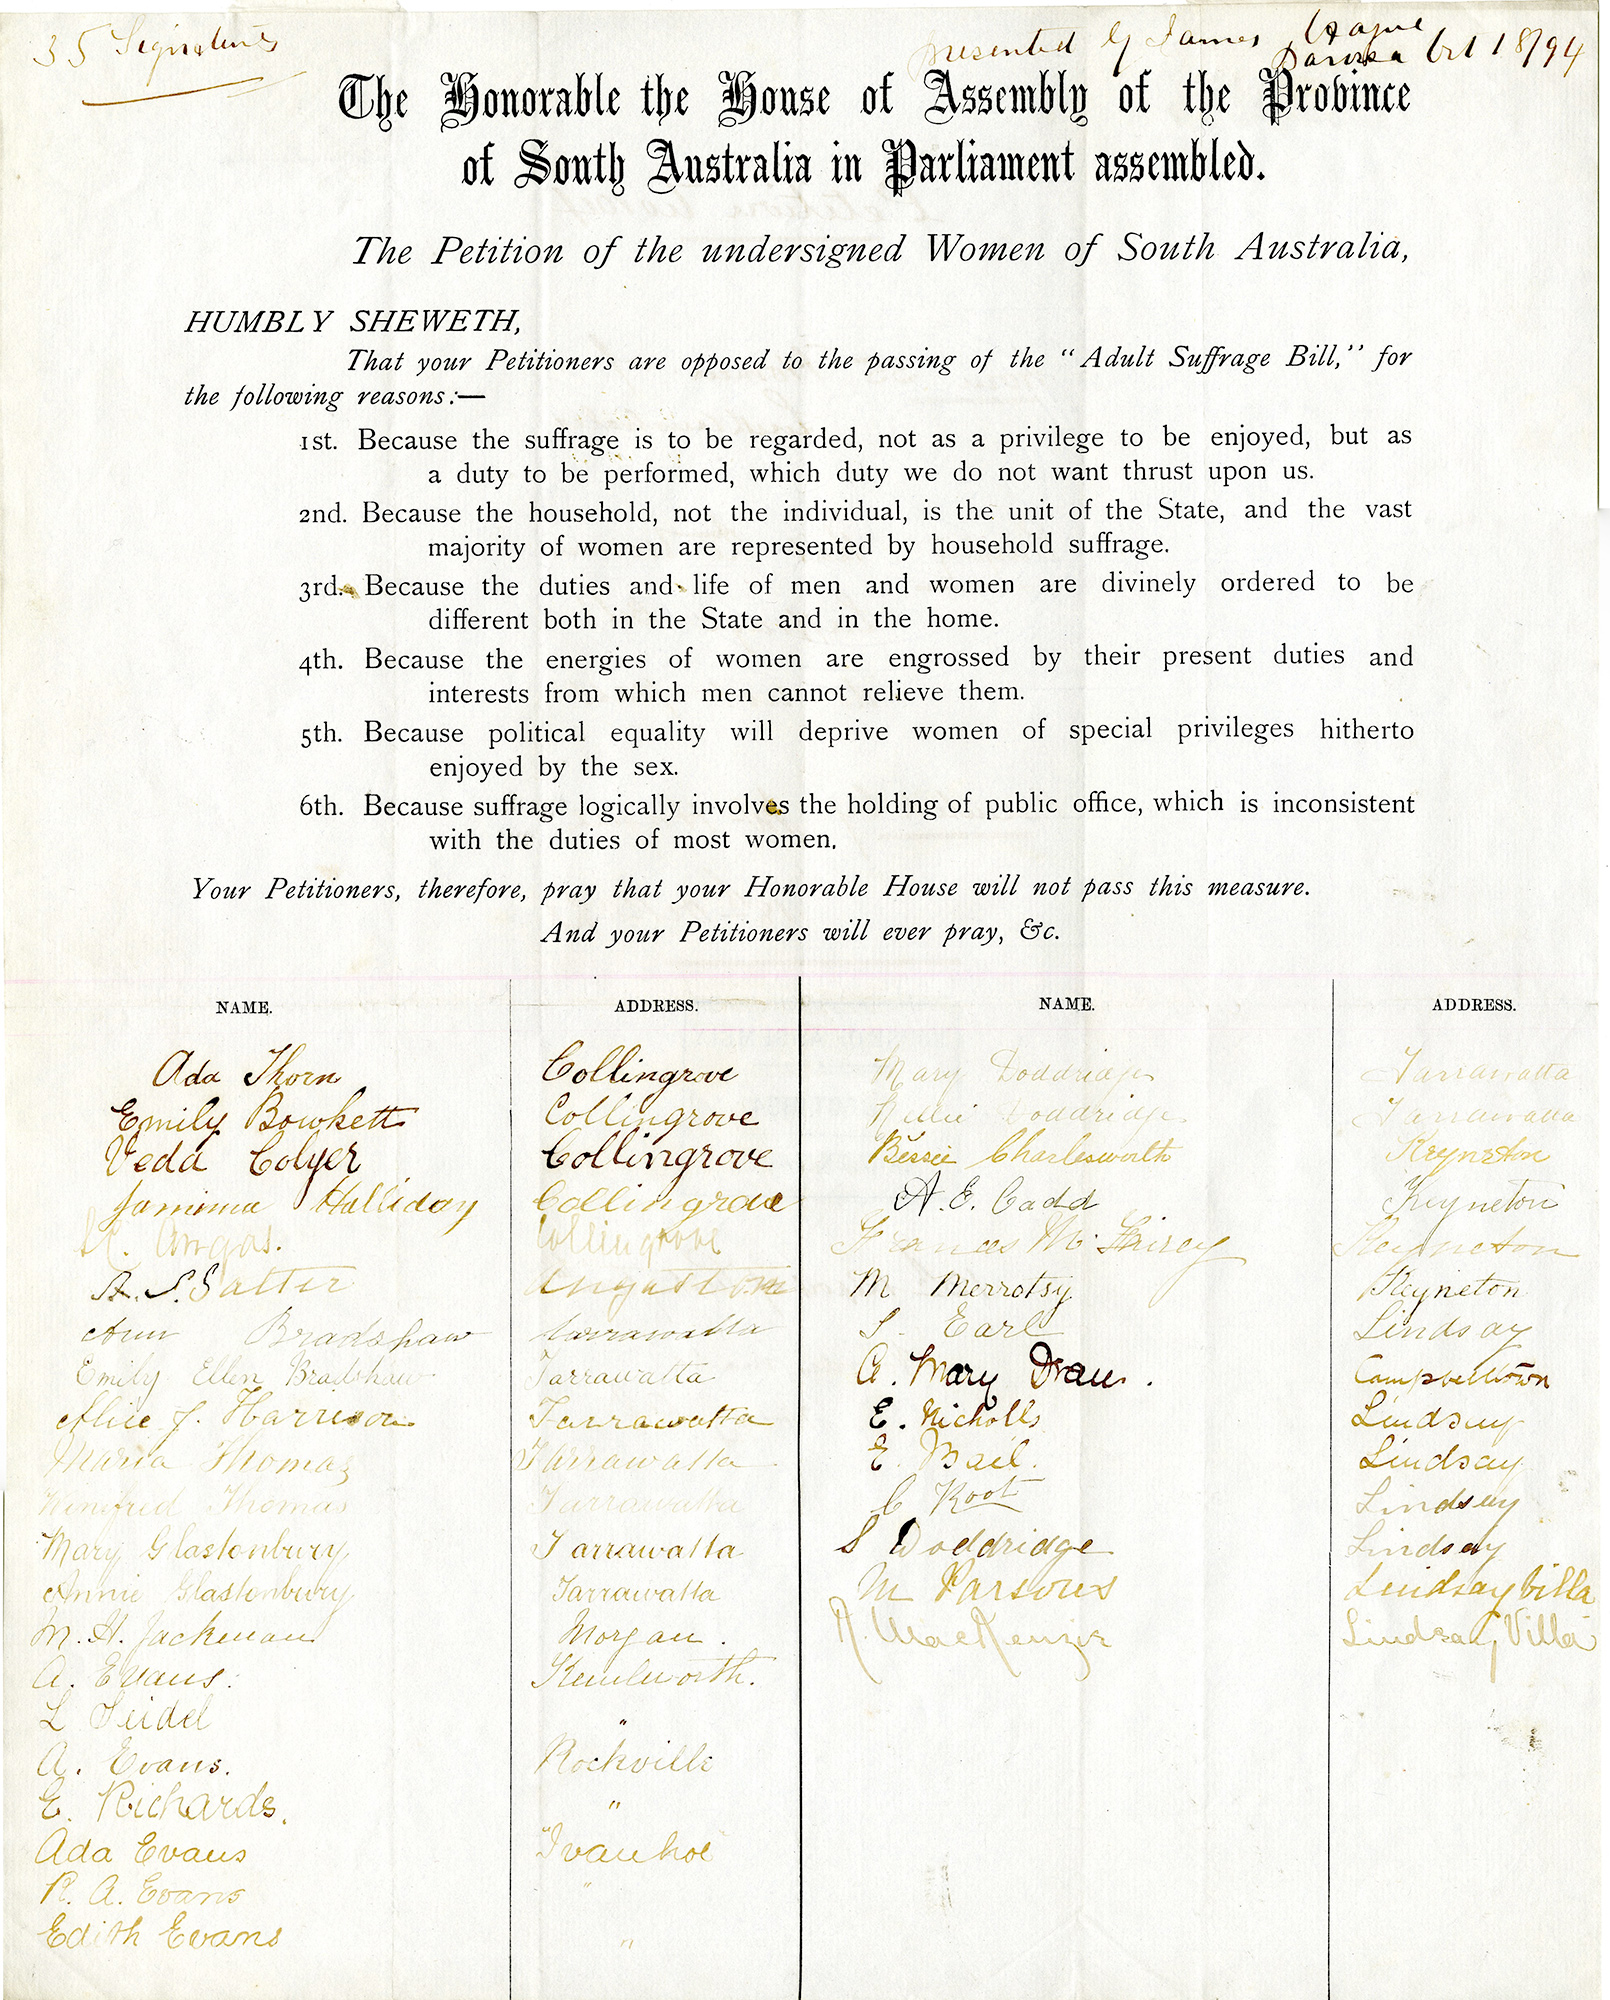 35 Signatures
presented by James Hague
Barossa Oct 18/94
The Honorable the House of Assembly of the Province
of South Australia in Parliament assembled.
The Petition of the undersigned Women of South Australia,
HUMBLY SHEWETH,
That your Petitioners are opposed to the passing of the “Adult Suffrage Bill,” for
the following reasons:—
1st. Because the suffrage is to be regarded, not as a privilege to be enjoyed, but as
a duty to be performed, which duty we do not want thrust upon us.
2nd. Because the household, not the individual, is the unit of the State, and the vast
majority of women are represented by household suffrage.
3rd. Because the duties and life of men and women are divinely ordered to be
different both in the State and in the home.
4th. Because the energies of women are engrossed by their present duties and
interests from which men cannot relieve them.
5th. Because political equality will deprive women of special privileges hitherto
enjoyed by the sex.
6th. Because suffrage logically involves the holding of public office, which is inconsistent
with the duties of most women.
Your Petitioners, therefore, pray that your Honorable House will not pass this measure.
And your Petitioners will ever pray, &c.
NAME. ADDRESS. NAME. ADDRESS.
Ada Thorn Collingrove
Emily Bowkett Collingrove
Veda Colyer Collingrove
Jamima Halliday Collingrove
Angas. Collingrove
A. S. Salter Angaston
Ann Bradshaw Tarrawatta
Emily Ellen Bradshaw Tarrawatta
Alice J. Harrison Tarrawatta
Maria Thomas Tarrawatta
Winifred Thomas Tarrawatta
Mary Glastonbury Tarrawatta
Annie Glastonbury Tarrawatta
M. H. Jackman Morgan.
A. Evans. Kenilworth.
L Seidel "
A. Evans. Rockville
E. Richards. "
Ada Evans Ivanhoe
R. A. Evans "
Edith Evans "
Mary Doddridge Tarrawatta
Nellie Doddridge Tarrawatta
Bessie Charlesworth Keyneton
A. E. Cadd Keyneton
Frances M. Keyneton
M Merrotsy Keyneton
S. Earl Lindsay
A. Mary Campbelltown
E. Nicholls Lindsay
E. Bail. Lindsay
C Root Lindsay
S Doddridge Lindsay
M Parsons Lindsay Villa
MacKenzie Lindsay Villa